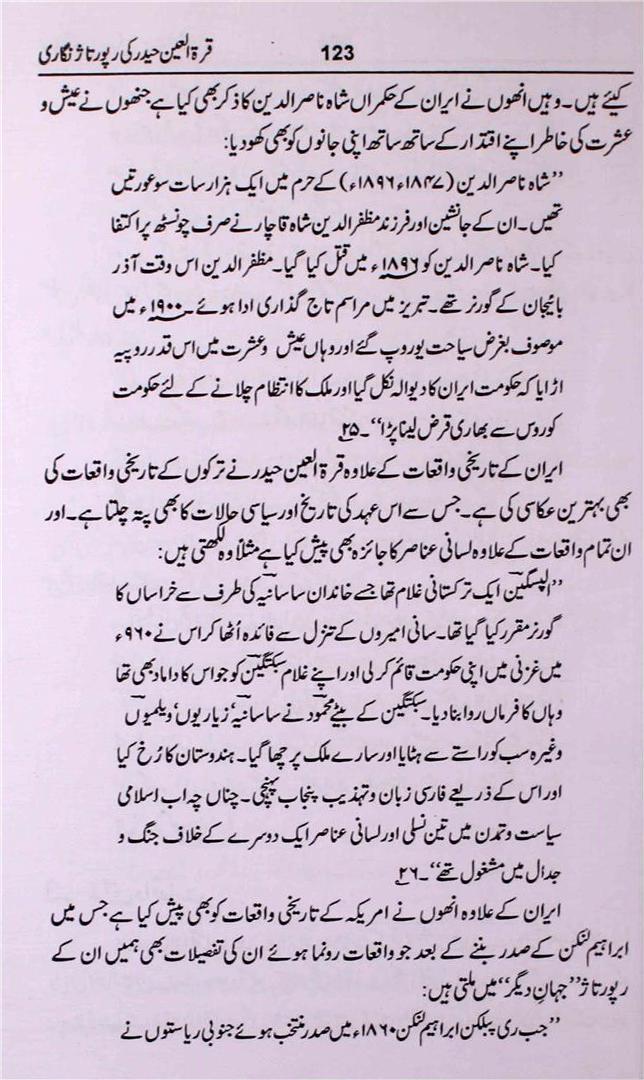 قرۃ العین حیدر کی رپورتاژ نگاری 123
کیئے ہیں۔ وہیں انھوں نے ایران کے حکمراں شاہ ناصر الدین کا ذکر بھی کیا ہے جنھوں نے عیش و
عشرت کی خاطر اپنے اقتدار کے ساتھ ساتھ اپنی جانوں کو بھی کھو دیا:
”شاہ ناصر الدین (۱۸۴۷ء ۱۸۹۶ء) کے حرم میں ایک ہزار سات سو عورتیں
تھیں۔ ان کے جانشین اور فرزند مظفر الدین شاہ قاچار نے صرف چونسٹھ پر اکتفا
کیا۔ شاہ ناصر الدین کو ۱۸۹۶ء میں قتل کیا گیا۔ مظفر الدین اس وقت آذر
بائیجان کے گورنر تھے۔ تبریز میں مراسم تاج گذاری ادا ہوئے ۔ ۱۹۰۰ء میں
موصوف بغرض سیاحت یوروپ گئے اور وہاں عیش و عشرت میں اس قدر روپیہ
اڑایا کہ حکومت ایران کا دیوالہ نکل گیا اور ملک کا انتظام چلانے کے لئے حکومت
کو روس سے بھاری قرض لینا پڑا“۔ ۲۵
ایران کے تاریخی واقعات کے علاوہ قرۃ العین حیدر نے ترکوں کے تاریخی واقعات کی
بھی بہترین عکاسی کی ہے۔ جس سے اس عہد کی تاریخ اور سیاسی حالات کا بھی پتہ چلتا ہے۔ اور
ان تمام واقعات کے علاوہ لسانی عناصر کا جائزہ بھی پیش کیا ہے مثلاً وہ لکھتی ہیں:
”الپسگین ایک ترکستانی غلام تھا جسے خاندان ساسانیہ کی طرف سے خراساں کا
گورنر مقرر کیا گیا تھا۔ سانی امیروں کے تنزل سے فائدہ اُٹھا کر اس نے ۹۶۰ء
میں غزنی میں اپنی حکومت قائم کر لی اور اپنے غلام سبکتگین کو جو اس کا داماد بھی تھا
وہاں کا فرماں روا بنا دیا۔ سبکتگین کے بیٹے محمود نے ساسانیہ، زیاریوں، ویلمیوں
وغیرہ سب کو راستے سے ہٹایا اور سارے ملک پر چھا گیا۔ ہندوستان کا رُخ کیا
اور اس کے ذریعے فارسی زبان و تہذیب پنجاب پہنچی۔ چناں چہ اب اسلامی
سیاست و تمدن میں تین نسلی اور لسانی عناصر ایک دوسرے کے خلاف جنگ و
جدال میں مشغول تھے“۔ ۲۶
ایران کے علاوہ انھوں نے امریکہ کے تاریخی واقعات کو بھی پیش کیا ہے جس میں
ابراہیم لنکن کے صدر بننے کے بعد جو واقعات رونما ہوئے ان کی تفصیلات بھی ہمیں ان کے
رپورتاژ ”جہانِ دیگر“ میں ملتی ہیں:
”جب ری پبلکن ابراہیم لنکن ۱۸۶۰ء میں صدر منتخب ہوئے جنوبی ریاستوں نے